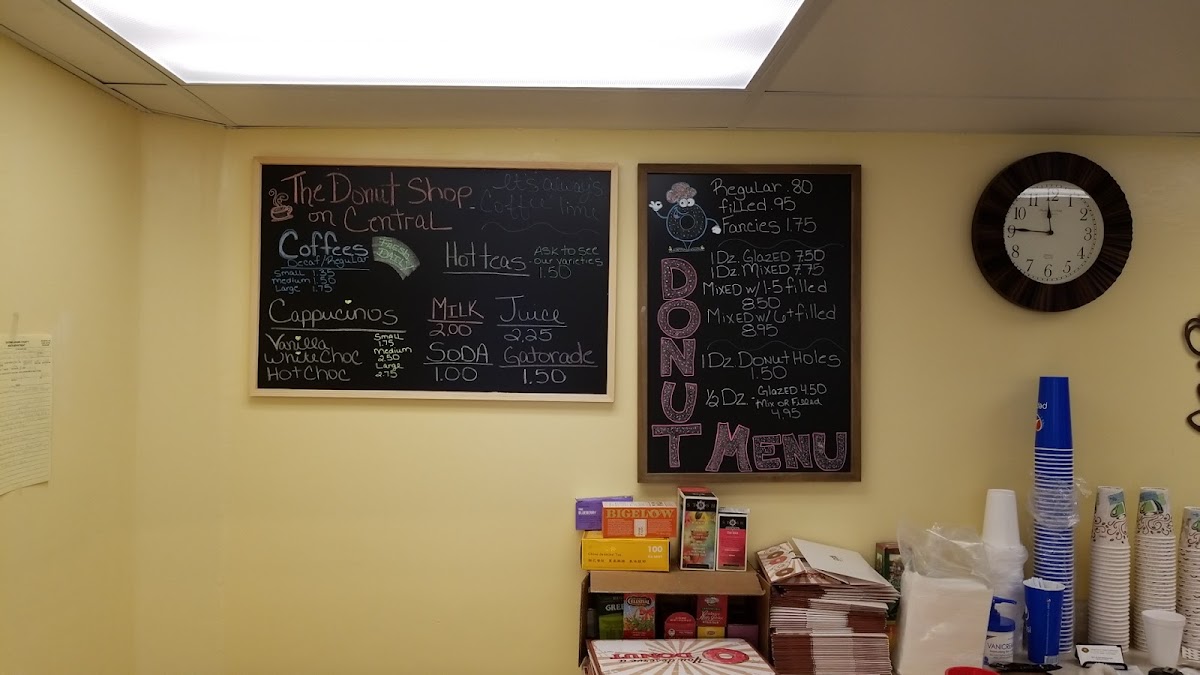 The Donut Shop
on Central
It's always
Coffee Time
Coffees
Decaf/Regular
Small 1.35
medium 1.50
Large 1.75
Hot teas
Ask to see
our varieties
1.50
Cappucinos
Vanilla
White Choc
Hot Choc
Small
1.75
medium
2.50
Large
2.75
Milk
2.00
Juice
2.25
SoDA
1.00
Gatorade
1.50
Regular .80
filled .95
Fancies 1.75
1 Dz. Glazed 7.50
1 Dz. Mixed 7.75
Mixed w/ 1-5 filled
8.50
Mixed w/ 6+ filled
8.95
1 Dz Donut Holes
1.50
1/2 Dz. - Glazed 4.50
Mix or Filled
4.95
DONUT
MENU
10 11 12 1 2 3 4 5 6 7 8 9
BIGELOW
100
DONUT